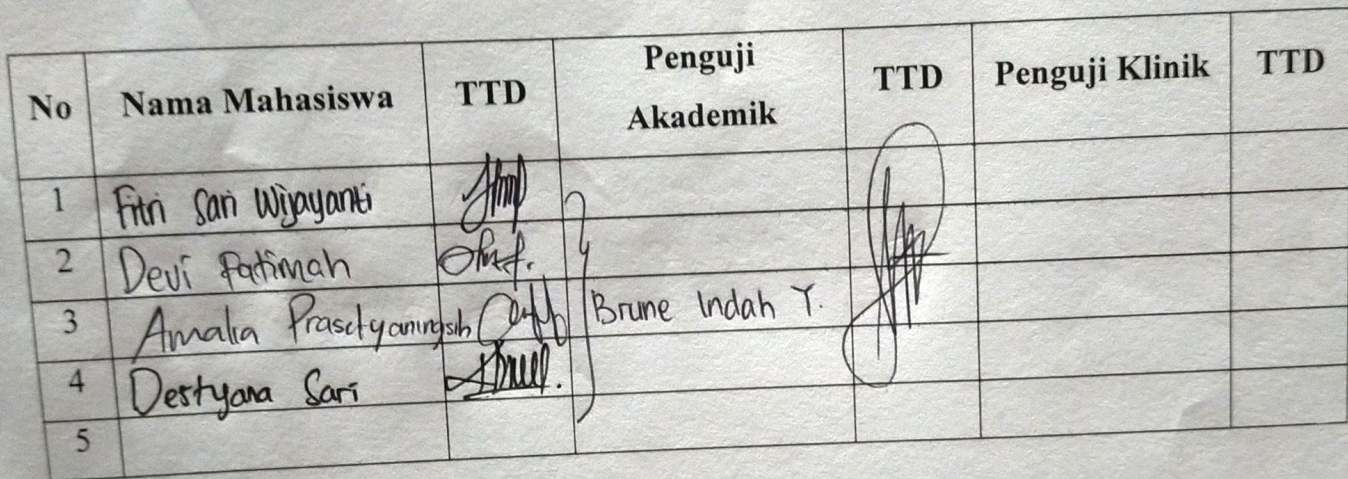 No Nama Mahasiswa TTD Penguji Akademik TTD Penguji Klinik TTD
1 Fitri Sari Wijayanti
2 Devi Fatimah
3 Amalia Prasetyaningsih Brune Indah Y.
4 Destyana Sari
5